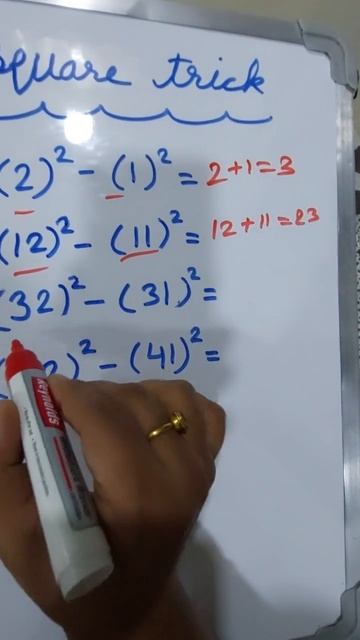 square trick
(2)² - (1)² = 2+1=3
(12)² - (11)² = 12+11=23
(32)² - (31)² =
2)² - (41)² =
Reynolds